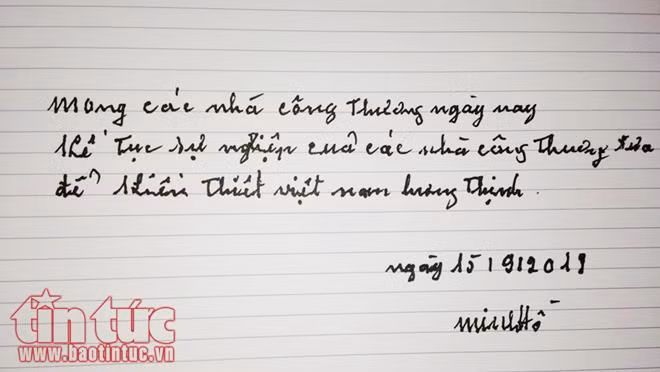 Mong các nhá công Thương ngày nay
kế Tục sự nghiệp cuả các nhà công Thương xưa
để kiến Thiết việt nam hưng Thịnh.
ngày 15/9/2019
Minh Hồ
tin tức
www.baotintuc.vn